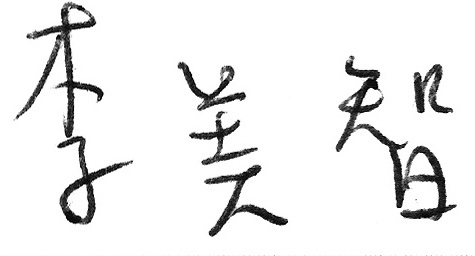 李美智